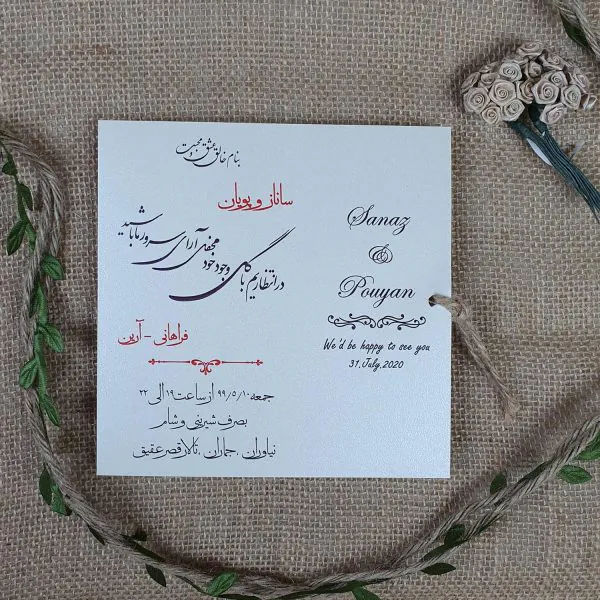 بنام خالق عشق و محبت
ساناز و پویان
در انتظاریم با گل وجود خود محفل آرای سرور ما باشید
فراهانی - آرین
جمعه ۹۹/۵/۱۰ از ساعت ۱۹ الی ۲۲
بصرف شیرینی و شام
نیاوران ، جماران ، تالار قصر عقیق
Sanaz
&
Pouyan
We'd be happy to see you
31.July.2020